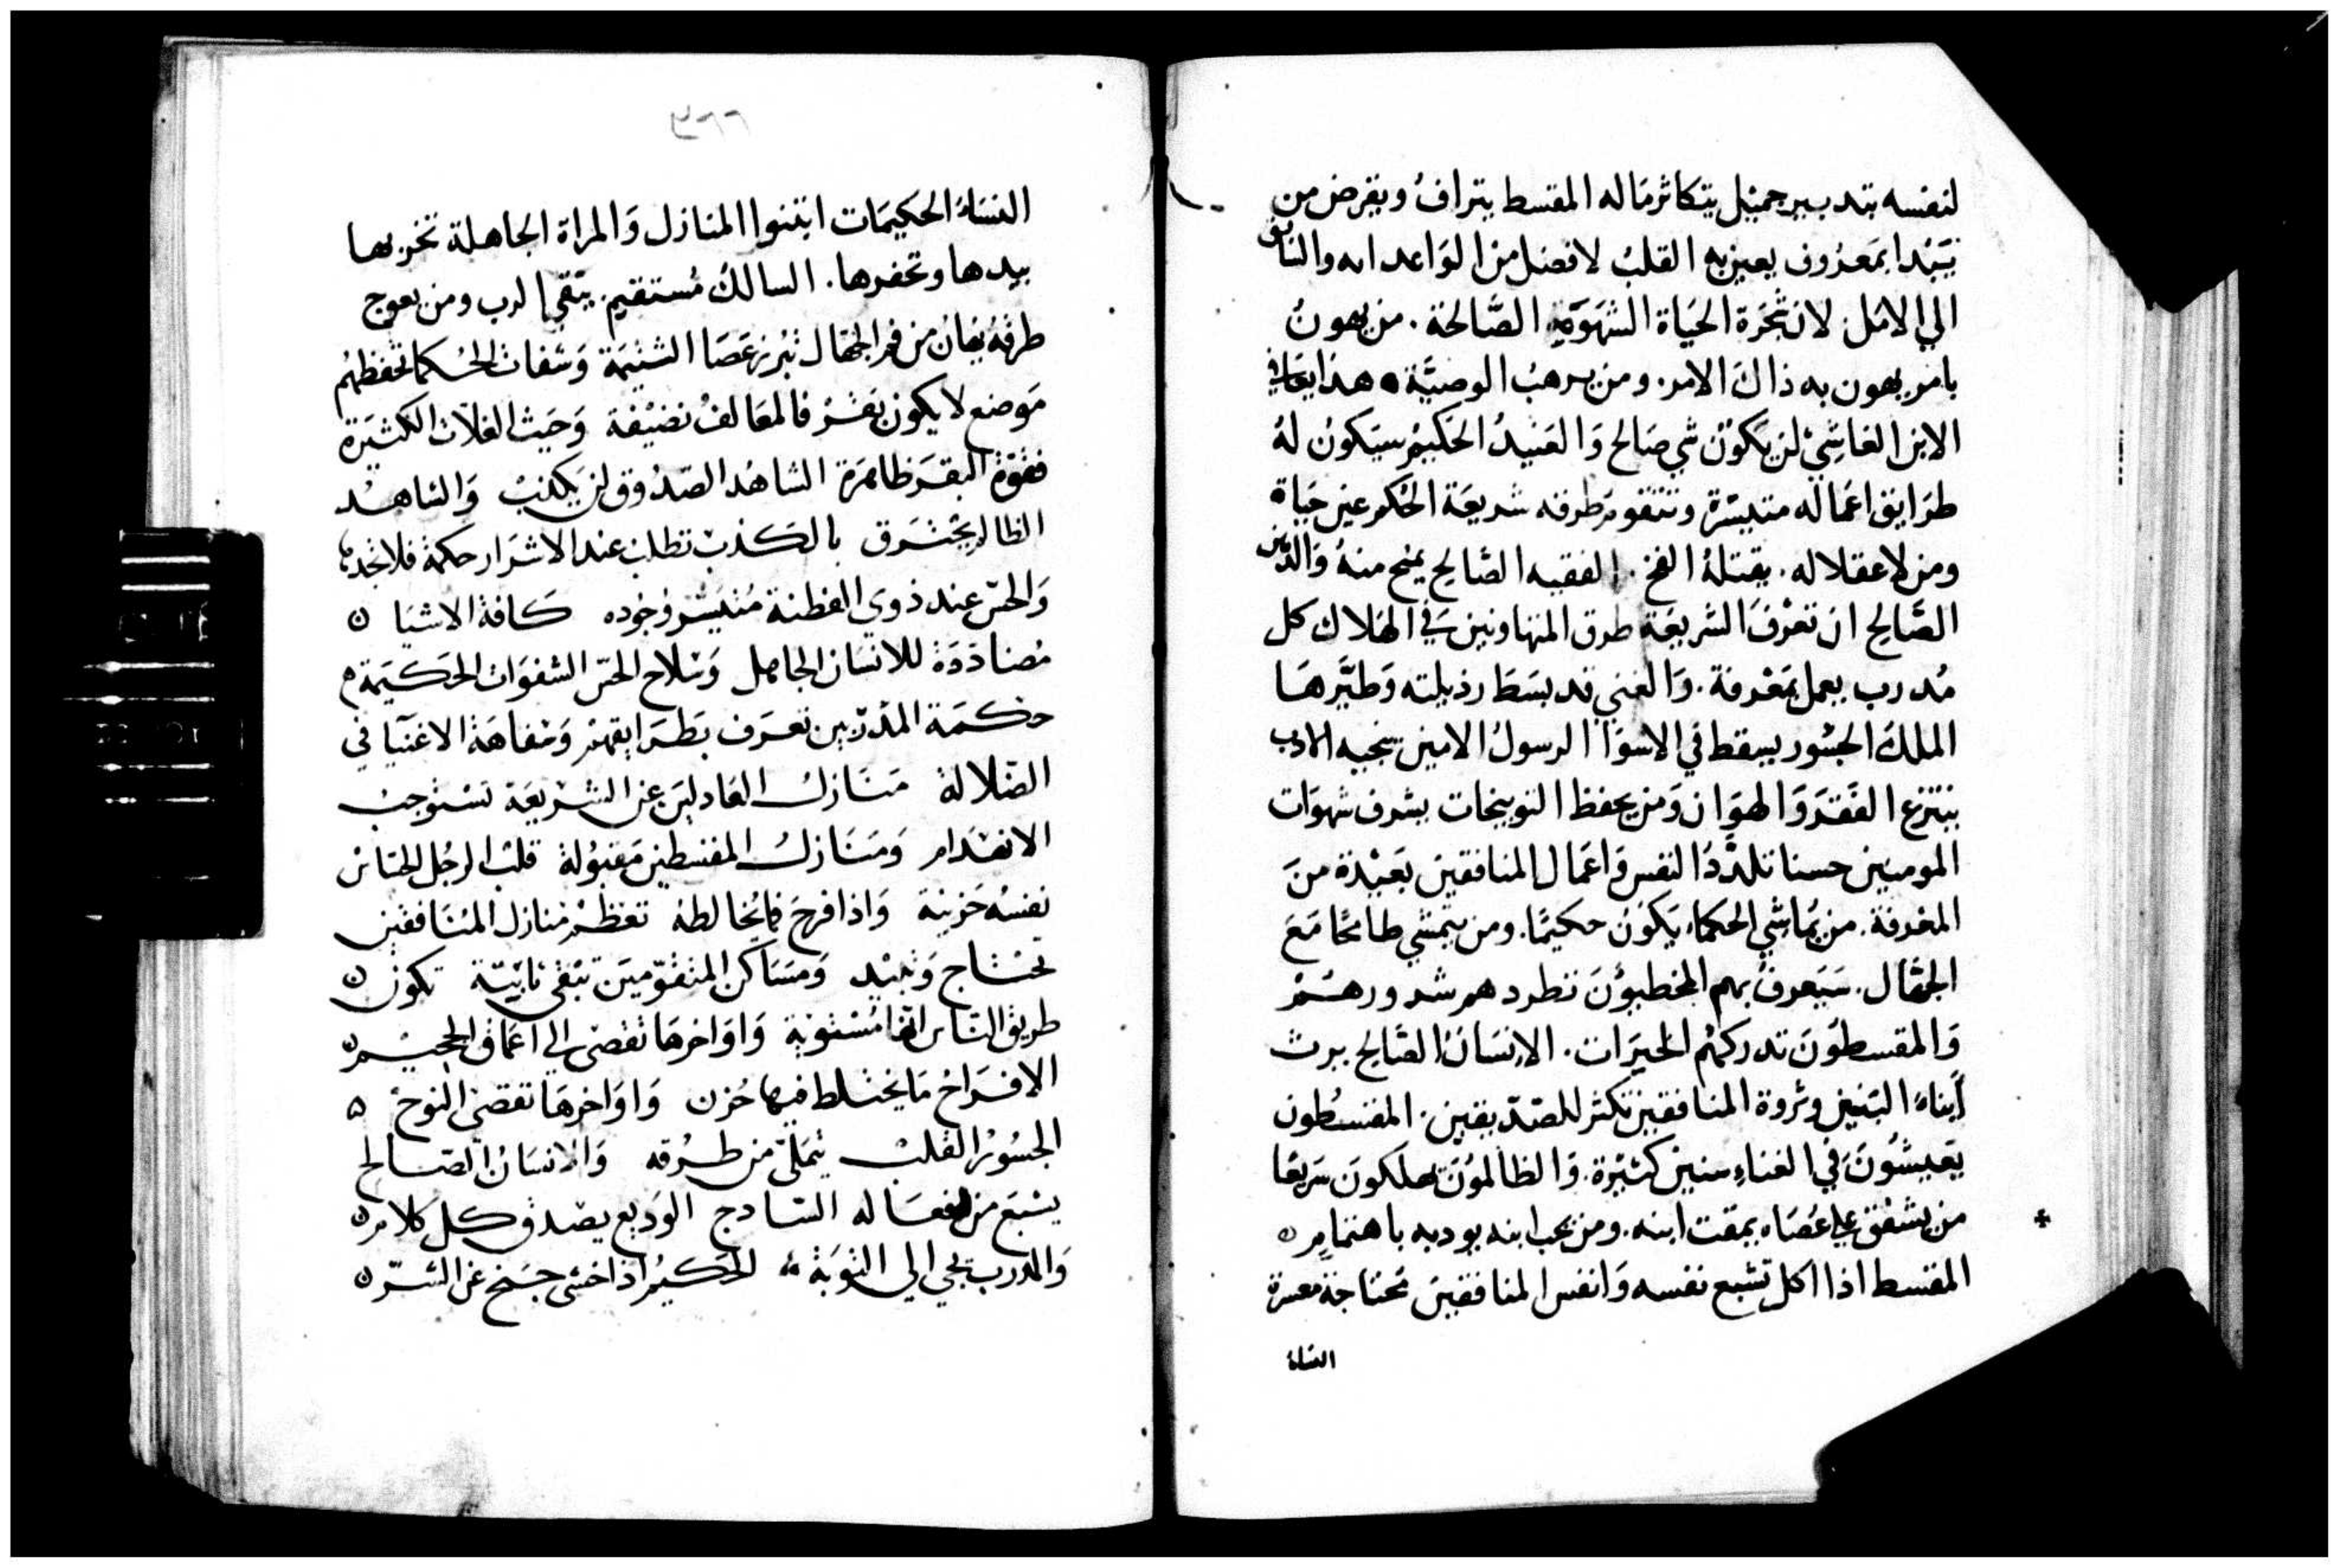 لنفسه بتدبير جميل يتكاثر ماله المقسط يترافُ ويقرض من
يَبْدا بمَعرُوف يعين به القلبُ لافضل من الوَاعد اىه والنايق
الي الامل لان شجَرة الحيَاة الشهوَة الصَّالحة . من يهونُ
بامر يهون به ذاكَ الامر . ومن يرهبُ الوصيَّة هذا يعافي
الابن الغاشِي لن يكونُ شي صَالح وَالعَبيدُ الحَكيم سيَكونُ لهُ
طرَايق اعمَاله متيسّرة وتتقوم طرقه شريعَة الحُكم عين حيَاة
ومن لا عقلا له . يقتلهُ الفخ . الفقيه الصَّالح يمنح منهُ وَالذهن
الصَّالح ان تعْرفَ الشريعَة طرق المتهاونين في الهَلاك كل
مُدرب يعمل بمَعْرفة . وَالغبي قد بسَطَ رذيلته وَطيَّرهَا
الملكُ الجسُور يسقط في الاسوَأ الرسولُ الامين ينجيه الادب
ينتزع الفَقرَ وَالهوَان وَمن يحفظ التوبيخات يشرف شهوَات
المومنين حسنا تلذّذُ النفس وَاعمَال المنافقين بَعيْدة منَ
المعْرفة . من يُماشي الحكماء يَكونُ حكيمًا . ومن يتمشي طامحًا مَعَ
الجهَّال . سَيَعرفُ بهم المخطيؤنَ تطردهم شرورهُمْ
وَالمقسطونَ تدركهُم الخيرَات . الإنسَانُ الصَّالح يرث
أبناءُ البَنين وثروة المنافقين تكثر للصّدّيقين . المقسُطون
يَعيشُونَ في الغناءِ سنين كثيْرة . وَالظالمُونَ يهلكونَ سَريعًا
من يشفق علي عَصَاه يمقت ابنه . ومن يحب ابنه يودبه باهتمامٍ
المقسط اذا اكل تشبع نفسه وَانفس المنافقينَ محتاجة معسرة
النسَاءُ
٢٦٦
النسَاءُ الحكيمَات ابتنوا المنازل وَالمراة الجاهلة تخربها
بيدها وتحفرها . السالكُ مُستقيم . يتقي الرب ومن يعوج
طرقهُ يهَان من فم الجهّال تبرز عَصَا الشتيمَة وَشفات الحُكما تحفظهُم
مَوضع لا يكون بَقرْ فالمعَالفُ نضيْفة وَحَيث الغلاَّت الكثيَرة
فقوّة البقرَ ظاهرَة الشاهدُ الصّدُوق لن يَكذبُ وَالشاهدْ
الظالم يَحْترَق بالكذبْ تطلبْ عند الاشرَار حكمة فلا تجدهُ
وَالحسّ عند ذوي الفطنة مُتيَسّر وجُوده كافة الاشيَا
مُضادَدَة للانسَان الجاهل وَسْلاح الحسّ الشفوَات الحَكيَمَة
حْكمَة المدَرّبين تعرَف بطرَايقهمْ وَسْفاهَة الاغنيَا في
الضّلالة مَنَازلُ العَادليَن عن الشريعَة تسْتوجبْ
الانهدَام وَمَنَازلُ المقسطين مَقبُولة قلبُ الرجُل الحسَّاسْ
نفسهُ حَزينة وَاذا فرحَ فما يُخالطهُ تعَظمُ منازل المنافقين
تحْتاج وَتبيْد وَمسَاكن المتقوّميَن تبْقى ثابَّتة تكون
طريق النَّاس انها مُسْتويَة وَاوَاخرهَا تفضي الي اعمَاق الجحيْم
الافرَاحْ مَا يختلط فيها حُزن وَاوَاخرهَا تفضي النوحْ
الجسُورُ القلبْ يتملّئ من طرُقه وَالانسَانُ الصَّالح
يشبَع من افعَاله السَّادج الوديع يصْدق كل كلامٍ
وَالمدرب يجي الي التوبَةْ الحَكيمُ اذا خشي جَنح عن الشرّ